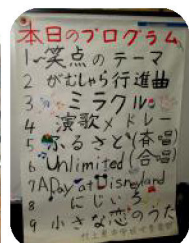 本日のプログラム
1 笑点のテーマ
2 がむしゃら行進曲
3 ミラクル
4 演歌メドレー
5 ふるさと(斉唱)
6 Unlimited(合唱)
7 A Day at Disneyland
8 にじいろ
9 小さな恋のうた